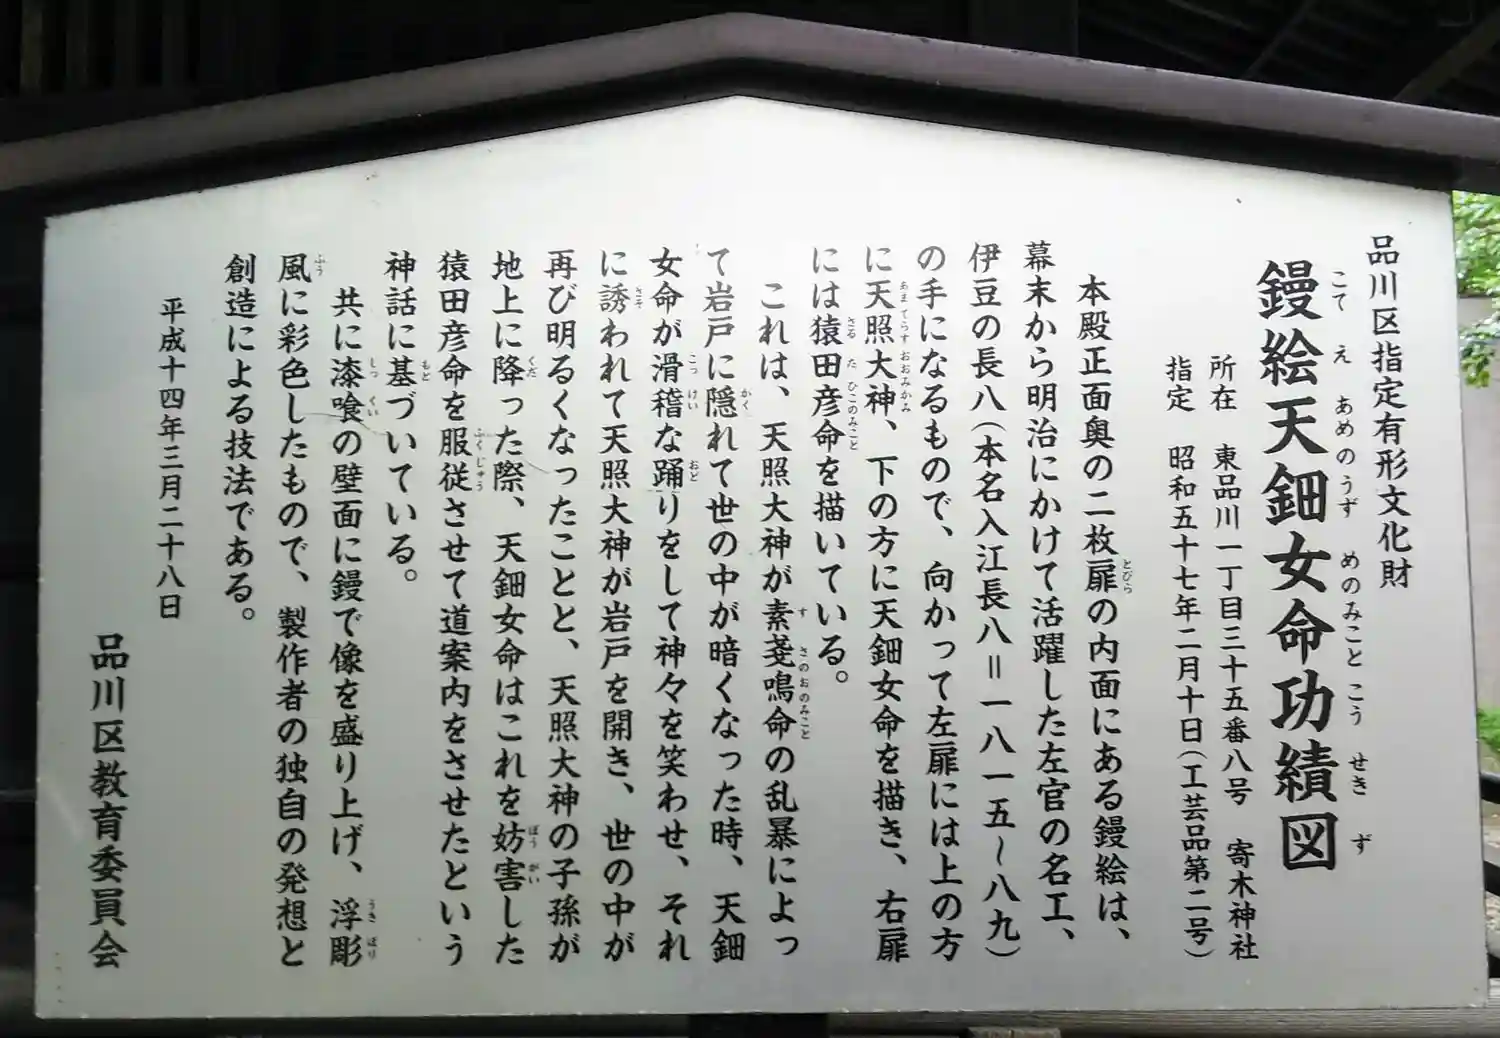 品川区指定有形文化財
鏝絵天鈿女命功績図
所在　東品川一丁目三十五番八号　寄木神社
指定　昭和五十七年二月十日（工芸品第二号）
本殿正面奥の二枚扉の内面にある鏝絵は、
幕末から明治にかけて活躍した左官の名工、
伊豆の長八（本名入江長八＝一八一五～八九）
の手になるもので、向かって左扉には上の方
に天照大神、下の方に天鈿女命を描き、右扉
には猿田彦命を描いている。
これは、天照大神が素戔鳴命の乱暴によっ
て岩戸に隠れて世の中が暗くなった時、天鈿
女命が滑稽な踊りをして神々を笑わせ、それ
に誘われて天照大神が岩戸を開き、世の中が
再び明るくなったことと、天照大神の子孫が
地上に降った際、天鈿女命はこれを妨害した
猿田彦命を服従させて道案内をさせたという
神話に基づいている。
共に漆喰の壁面に鏝で像を盛り上げ、浮彫
風に彩色したもので、製作者の独自の発想と
創造による技法である。
平成十四年三月二十八日
品川区教育委員会